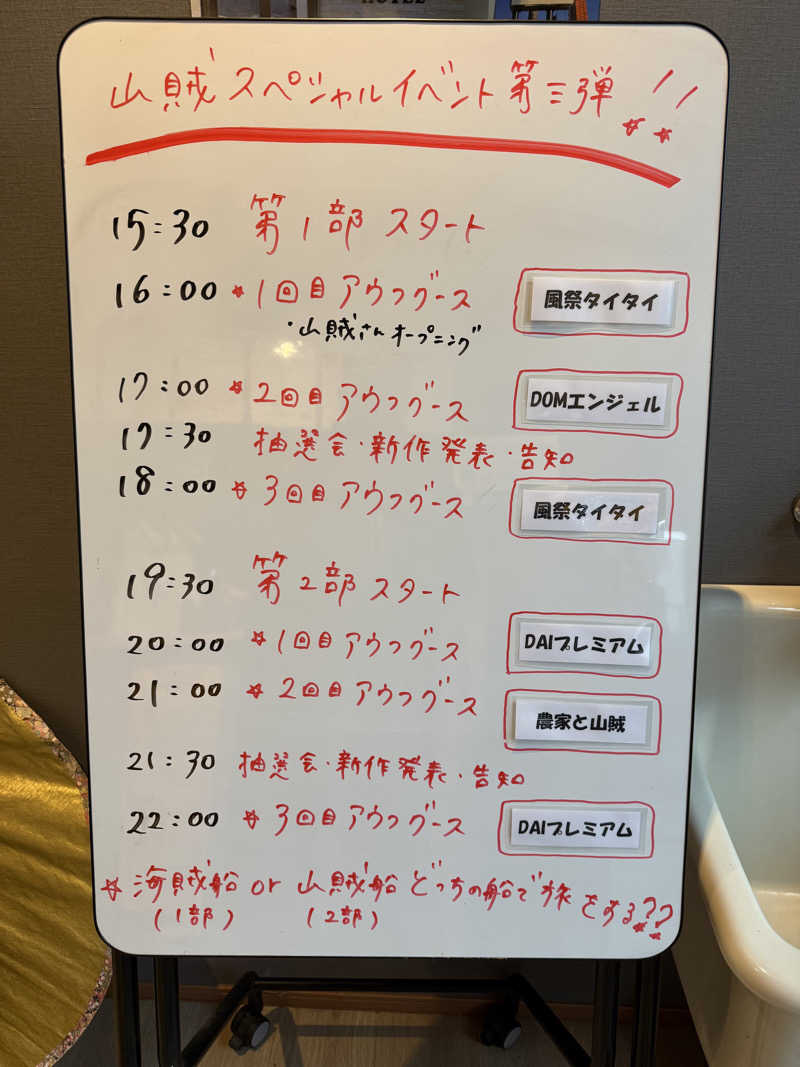 HOTEL
山賊スペシャルイベント第三弾!!
15:30 第1部 スタート
16:00 ★1回目 アウフグース 風祭タイタイ
・山賊さんオープニング
17:00 ★2回目 アウフグース DOMエンジェル
17:30 抽選会・新作発表・告知
18:00 ★3回目 アウフグース 風祭タイタイ
19:30 第2部 スタート
20:00 ★1回目 アウフグース DAIプレミアム
21:00 ★2回目 アウフグース 農家と山賊
21:30 抽選会・新作発表・告知
22:00 ★3回目 アウフグース DAIプレミアム
★海賊船 or 山賊船 どっちの船で旅をする??
(1部) (2部)